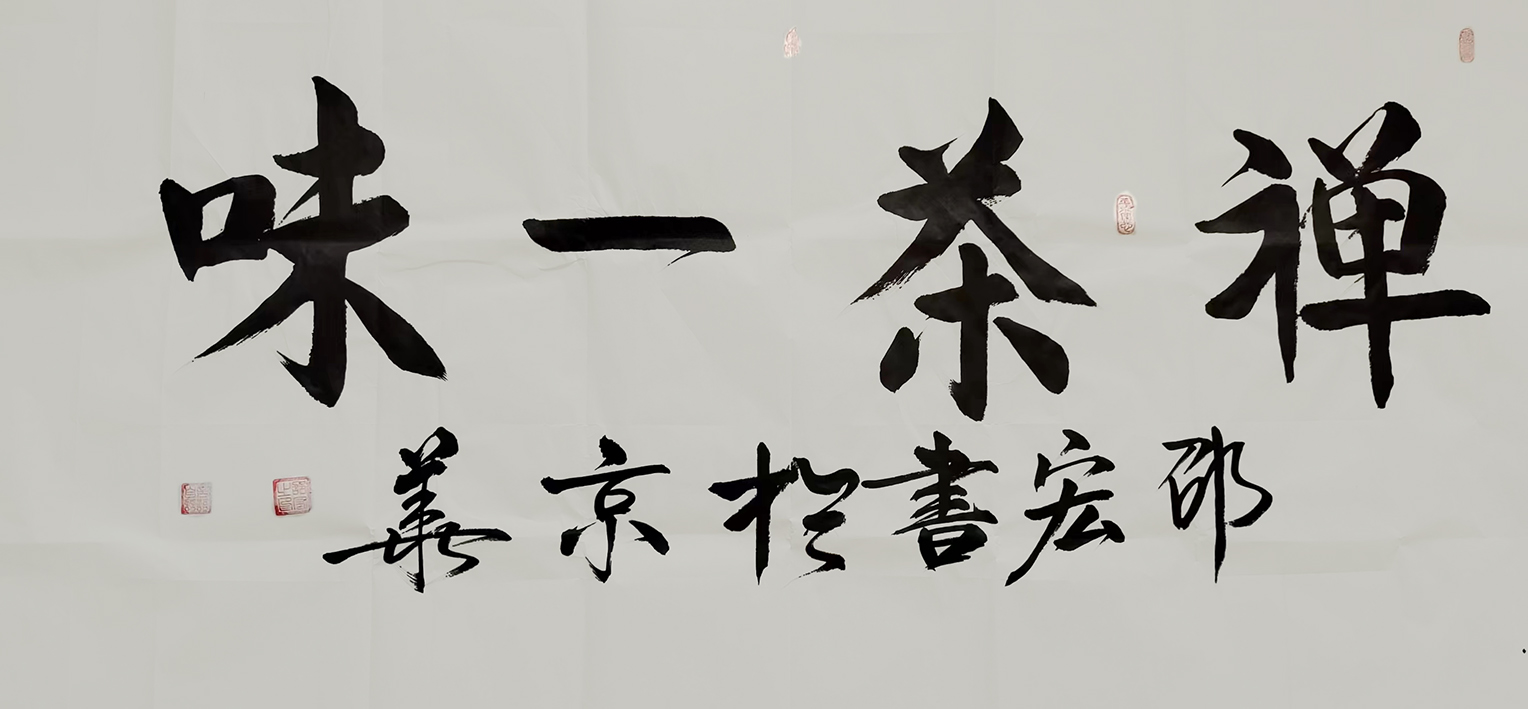 禅茶一味
邵宏書於京華